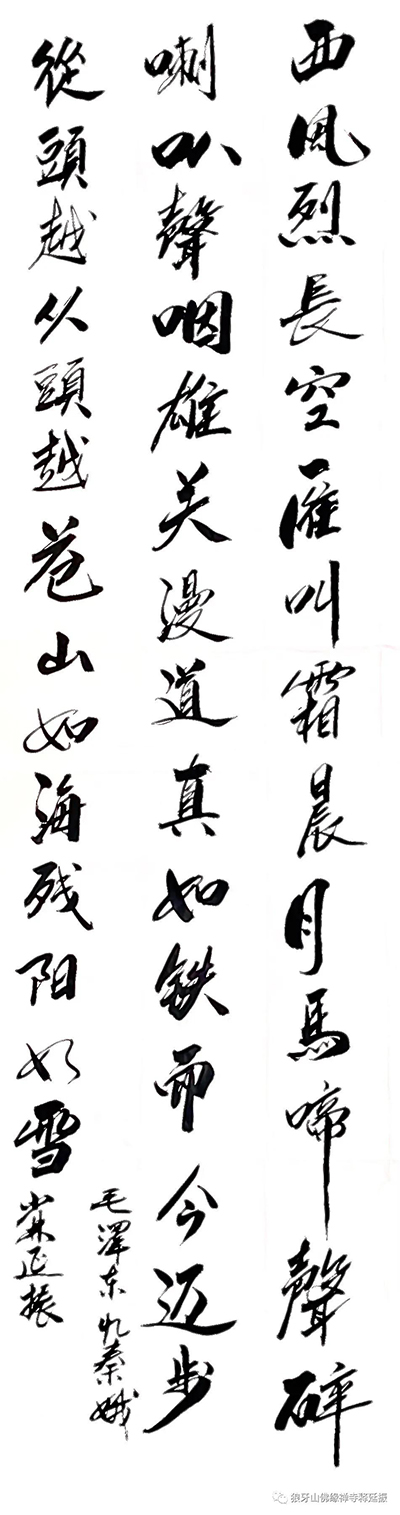 西风烈長空雁叫霜晨月馬啼聲碎
喇叭聲咽雄关漫道真如铁而今迈步
從頭越从頭越苍山如海残阳如雪
毛澤东忆秦娥
少林延振
狼牙山佛緣禅寺释延振